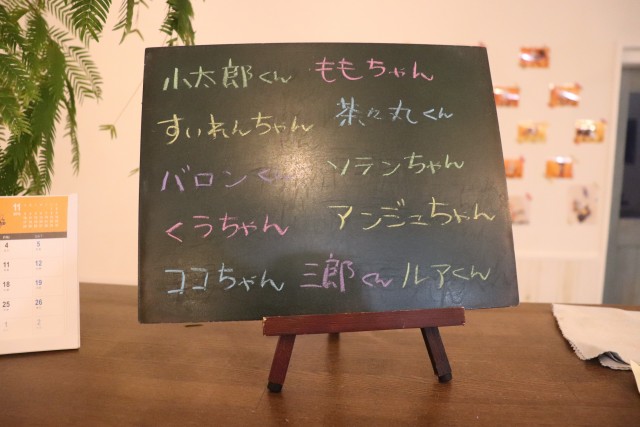 小太郎くん ももちゃん
すいれんちゃん 茶々丸くん
バロンくん ソランちゃん
くうちゃん アンジュちゃん
ココちゃん 三郎くん ルアくん
11
4 5
11 12
18 19
25 26
1 2